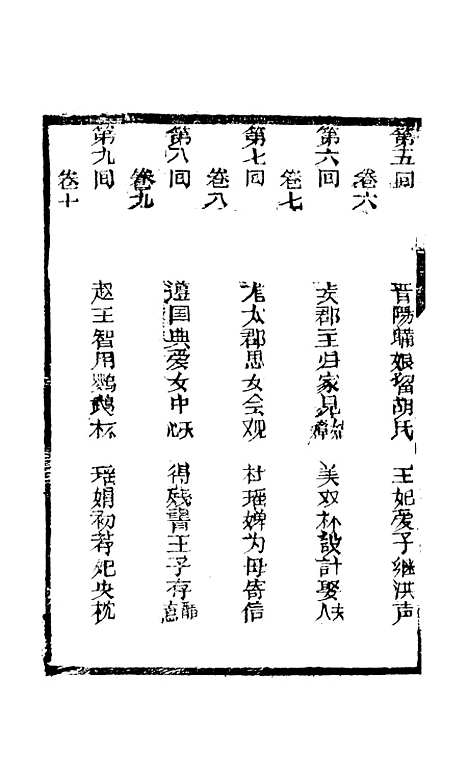 第五回 晋陽瞞娘留胡氏 王妃爱子继洪声
卷六
第六回 美郡王归家見 美双杯設計娶夫人
卷七
第七回 太郡思女会观 杜瑶婢为母寄信
卷八
第八回 遵国典爱女中 得残書王子存
卷九
第九回 赵王智用鹦鹉杯 瑶娟初荐妃央枕
卷十